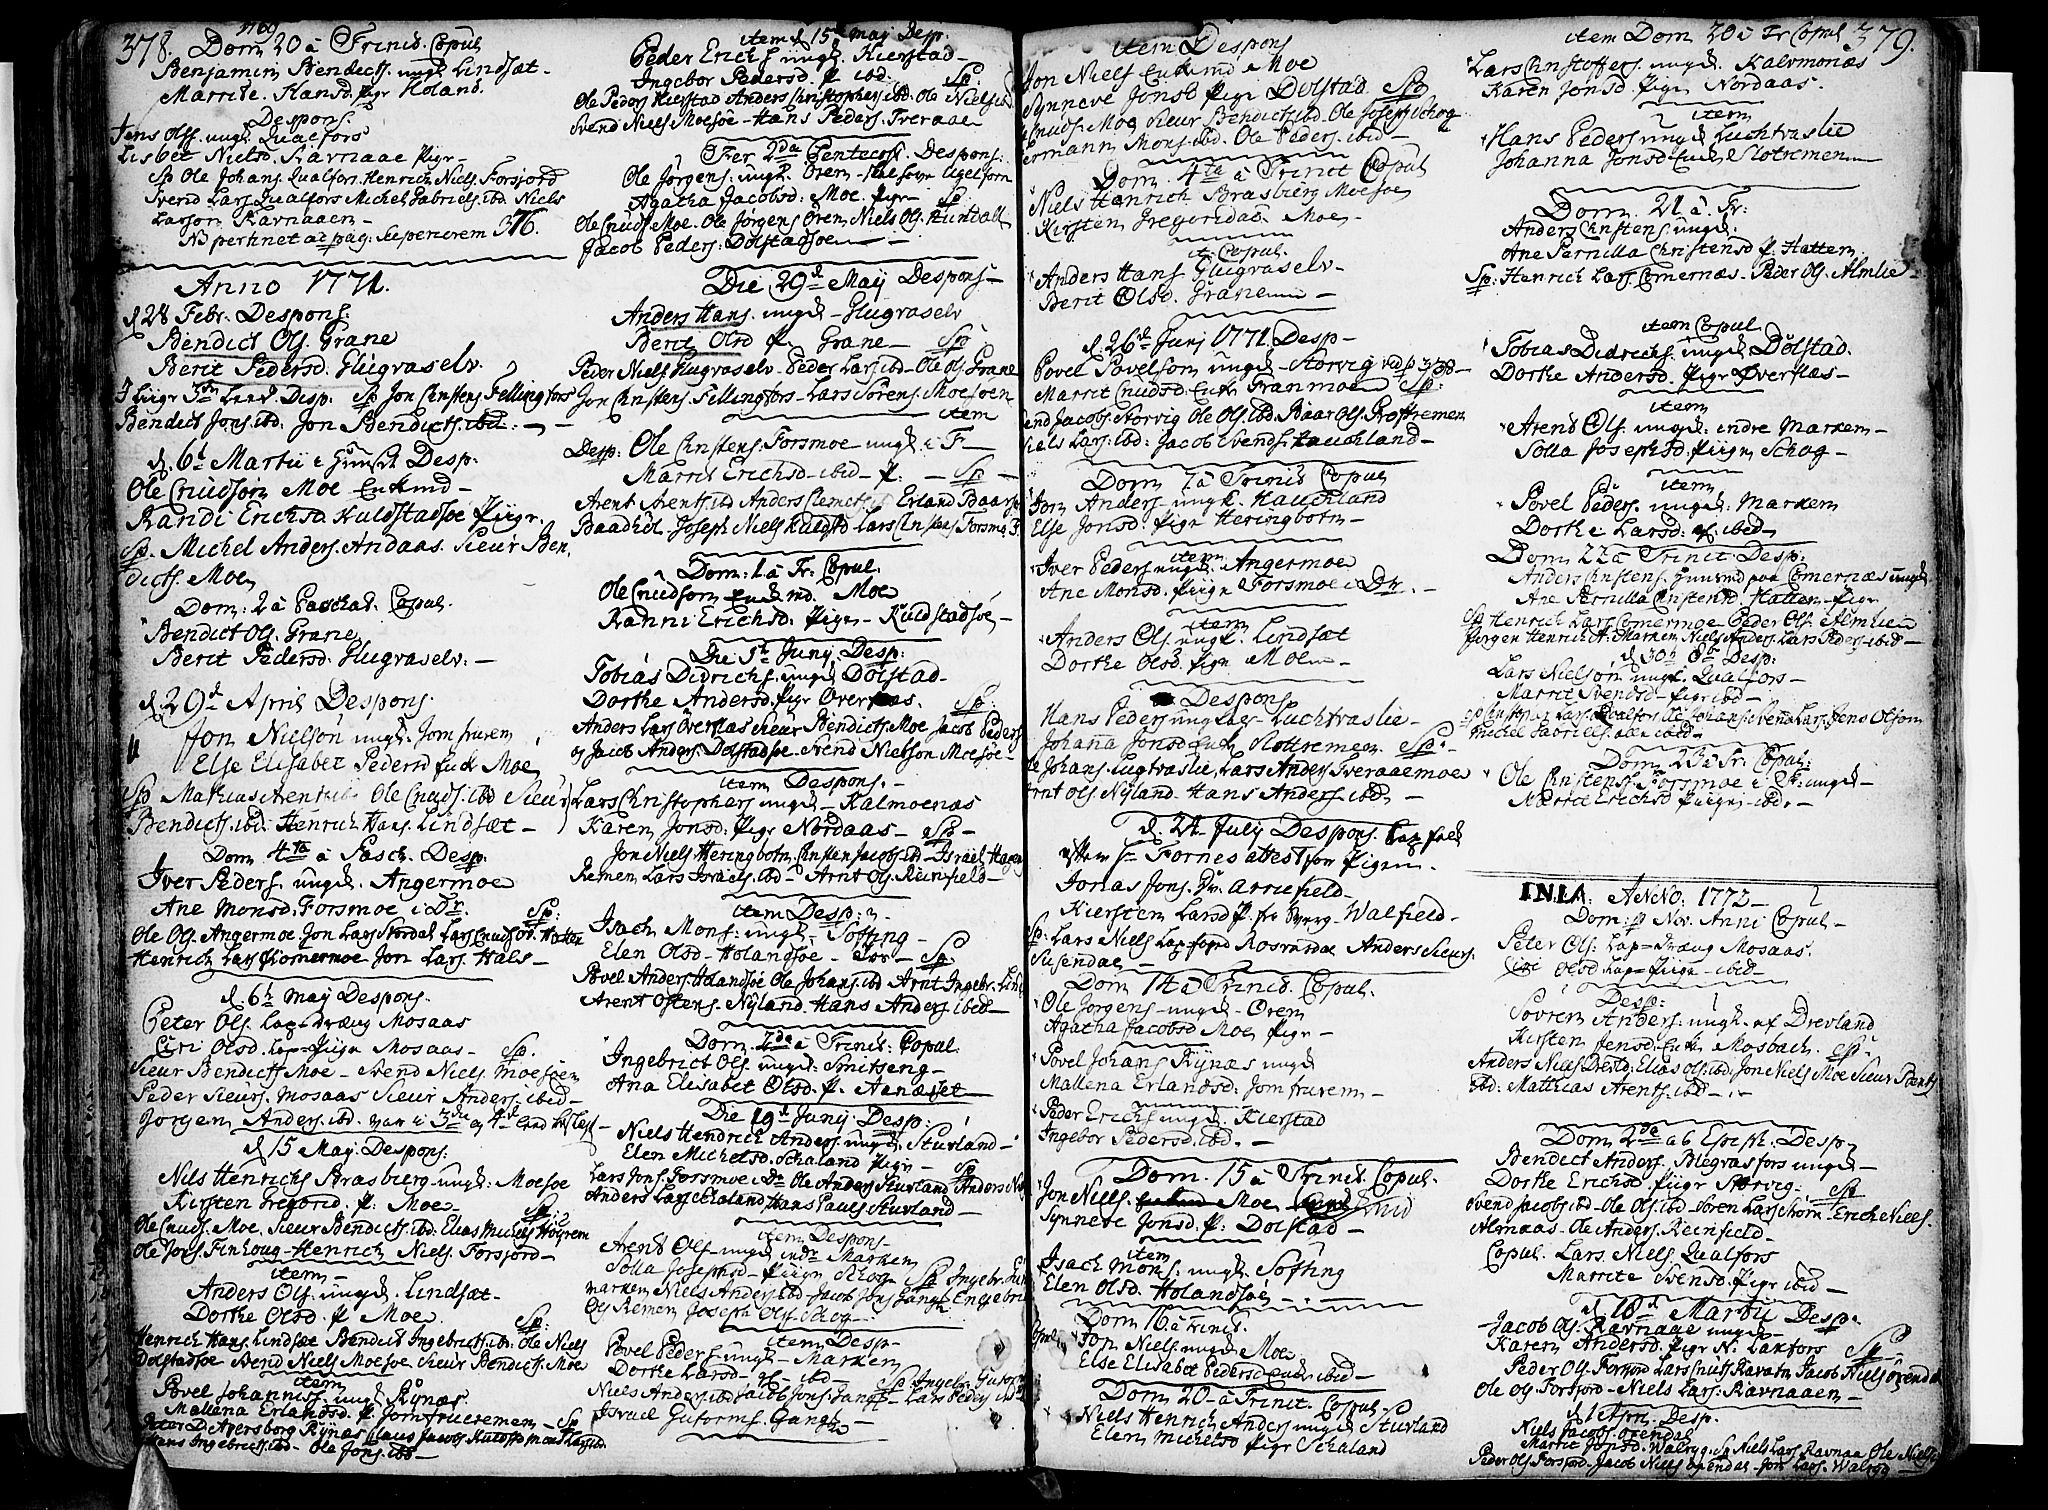 378. 1769
Dom 20 à Trinit. Copul
Benjamin Bendicts. ungk Lindsæt-
Marrite Hansd. Pigr Holand.
Despons
Jens Ols. ungk Qualfors
Lisbet Nielsd. Ravnaae Pigr-
Sp Ole Johans. Qualfors. Henrich Niels. Forsjord
Svend Lars. Qualfors Michel Gabriels. ibd Niels
Larson Ravnaaen-
NB pertinet ad pag: Superiorem 376.
Anno 1771.
d 28 Febr. Despons:
Bendict Ols. Grane
Berit Pedersd. Glugraselv.
3 Liigr 3die Led. Desp: Sp Jon Christens Fellingfors
Bendict Jons. ibd: Jon Bendicts. ibd: -
d. 6t Martii Desp:
Ole Cnudson Moe Enkmd-
Randi Erichsd. Kuldstadsøe Piigr.
Sp. Michel Anders. Andaas. Sieur Ben,
dicts. Moe
Dom: 2 à Paschat. Copul.
Bendict Ols. Grane
Berit Pedersd. Glugraselv: -
d. 29d April Despons:
Jon Nielson ungk: Jomfruem
Else Elisabet Pedersd Enck Moe
Sp Mathias Arents. ibd Ole Cnuds. ibd Sieur
Bendicts. ibd. Henrich Hans. Lindsæt-
Dom 4ta à Pasch. Desp:
Iver Peders. ungk. Angermoe
Ane Monsd. Forsmoe i Dr. Sp:
Ole Ols. Angermoe Jon Lars Nordal Lars Cnudson Hatten
Henrich Lars. Comermoe Jon Lars. Hals-
d 6t May Despons:
Peter Ols. Lap-Dræng Mosaas
Siri Olsd. Lap-Piign Mosaas- Sp.
Sieur Bendicts Moe- Svend Niels. Moesøen
Peder Sieurs. Mosaas Sieur Anders. ibid-
Jorgen Anders. ibd. var i 3die og 4de Led
d 15 May. Despons:
Nils Henrichs Brasberg-ungk: Moesøe
Kirsten Gregorsd. P. Moe-
Ole Cnuds. Moe. Sieur Bendicts. ibd. Elias Michels Høyrem
Ole Jons Finhoug-Henrich Niels. Forsjord-
item-
Anders Ols. ungk. Lindsæt-
Dorthe Olsd. P Moe- Sp:
Henrich Hans. Lindsæt Bendict Ingebricts ibd: Ole Niels
Dolstadsøe Svend Niels Moesøe Sieur Bendicts. Moe
item
Povel Johannis. ungk Rynæs
Mallena Erlandsd. P. Jomfrueremen- Sp
Peter D: Aversborg Rynæs Claud Jacobs
Hans Ingebricts. ibd- Ole Jons. ibd-
item d 15 May Desp.
Peder Erichs. ungk. Kierstad-
Ingebor Pedersd. P ibd: Sp:
Ole Peders Kierstad Anders Christophers ibd. Ole Niels ibd
Svend Niels Moesøe-Hans Peders. Tveraae
Fer 2da Pentecost. Despons:
Ole Jørgens: ungk. Ørem
Agatha Jacobsd: Moe. Pigr Sp:
Ole Cnuds Moe. Ole Jørgens Ørem Niels Ols: Hundall
Jacob Peders: Dolstadsøe-
Die 29d May Despons-
Anders Hans. ungk-Glugraselv
Berit Olsd P. Grane- Sp
Peder Niels Glugraselv- Peder Lars ibd- Ole Ols Grane
Jon Christens. Fellingfors-Lars Sørens. Moesøen
item
Desp: Ole Christens. Forsmoe-ungk i F-
Marrit Erichsd-ibid-P. - Sp-
Arent Arents ibd Anders Clemets Erland Baars
Baadhol Joseph Niels Lars Forsmo F
Dom: 1 à Tr: Copul:
Ole Cnudson Enkmd. Moe
Ranni Erichsd: Pigr- Kuldstadsøe-
Die 5t Junij. Desp:
Tobias Didrichs. ungk Dolstad-
Dorthe Andersd. Pigr Øverlaas. Sp:
Anders Lars Øverlaas Sieur Bendicts Moe Jacob Peders
og Jacob Anders. Dolstadsøe-Svend Nielson Moesøe-
item Despons.
Lars Christophers ungk-Kalmoenæs
Karen Jonsd: Pigr Nordaas- Sp-
Jon Niels Heringbotn. Christen Jacobs ibd- Israel Hagen
Remen Lars Israels. ibd- Arnt Ols. Reinfield-
item Desp:
Isach Mons: ungk- Søfting-
Elen Olsd- Holandsøe- Sp.
Povel Anders Holandsøe Ole Johans. ibd Arnt Ingebr.
Arent Ostens. Nyland. Hans Anders ibid-
Dom. 2da à Trinit: Copul:
Ingebrict Ols. ungk: Smitseng-
Ana Elisabet Olsd. P. Aanæset-
Die 19d Junij Desp:
Niels Hendrich Anders. ungk Stuvland-
Elen Michelsd. Schaland Pigr- Sp
Lars Jons Forsmoe i Dr Ole Anders Stuvland Anders Niels
Anders Lars Schaland Hans Pauls Stuvland-
item Despons-
Arent Ols- ungk indr Markem
Solla Josephsd- Piign Schog- Sp Ingebr.
Markem Niels Anders. ibd- Jacob Jons Gangk Engebric
Ols Remen Joseph Ols Schog-
item Desp-
Povel Peders ungk- Markem
Dorthe Larsd- ibd- Sp Ingebr. Gutorm
Niels Anders. ibd Jacob Jons. Gangk- Lars Peders ibd
Israel Gutorms. Gangk-
item Despons
Jon Niels Enkmd Moe
Synneve Jonsd Pigr Dolstad. Sp
Cnuds. Moe, Sieur Bendicts ibd. Ole Josephs Schog
Hermann Mons. ibd. Ole Peders. ibd-
Dom. 4ta à Trinit Copul
Niels Henrich Brasberg Moesøe
Kirsten Gregorsdat. Moe-
it. Copul.
Anders Hans Glugraselv-
Berit Olsd. Grane-
d 26t Junj 1771 Desp-
Povel Povelson ungk-Storvig vid p 338-
Marrit Cnudsd. Enke Granmoe Sp:
Svend Jacobs. Storvig Ole Ols. ibd. Baar Ols. Brattremen
Niels Lars. ibd: Jacob Svends. Hauchland-
Dom 7 à Trinit Copul
Jon Anders. ungk. Hauchland
Else Jonsd. Pigr Heringbotn-
item
Iver Peders ungk. Angermoe
Ane Monsd. Piign Forsmoe i Dr. -
item
Anders Ols. ungk. Lindsæt
Dorthe Olsd. Pign Moe-
Despons
Hans Peders ungk- Luchtvaslie-
Johana Jonsd Enk Slottremen. Sp:-
Ole Johans. Lugtvaslie, Lars Anders Tveraaemoe
Arnt Ols Nyland. Hans Anders. ibd-
d. 21 July Despons. Lap Folk
efter Hr Fornes attest om Pigen.
Jonas Jons. Dr. Arrefield-
Kiersten Larsd P. fra Sverg- Walfield-
Sp: Lars Niels Lap-fogd Rosvandet Anders Sieurs.
Susendal-
Dom 14 à Trinit. Copul.
Ole Jorgens-ungk- Ørem
Agatha Jacobsd Moe Pigr-
Povel Johans Rynæs ungk
Mallena Erlandsd: Jomfruem-
Peder Erichs ungk. Kierstad
Ingebor Pedersd. ibd.-
Dom. 15 à Trinit Copul.
Jon Niels. Moe Enkmd
Synneve Jonsd. P. Dolstad-
item
Isach Mons. ungk Søfting
Elen Olsd. Holandsøe.
Dom 16 à Trinit.
Copul. Jon Niels. ungk Moe
Else Elisabet Pedersd Enk ibid-
Dom 20 à Trinit. Copul.
Niels Henrich Anders ungk Stuvland
Elen Michelsd Pigr Schaland
item Dom 20 à Tr Copul 379.
Lars Christoffers. ungk Kalvmonæs
Karen Jonsd. Pigr Nordaas.
item
Hans Peders ungk Luchtvaslie
Johanna Jonsd Enk Slotremen
Dom. 21 à Tr:
Anders Christens ungk.
Ane Pernilla Christensd P. Hatten
Sp: Henrich Lars. Comernæs- Peder Ols. Almlie-
item Copul
Tobias Didrichs. ungk Dolstad.
Dorthe Andersd. Pigr Øverlaas-
item
Arent Ols. ungk: indre Markem-
Solla Josephsd. Piign Schog-
item
Povel Peders. ungk. Markem
Dorthe Larsd. ibid-
Dom. 22 à Trinit. Desp:
Anders Christens. Huusmd paa Comernæs ungk
Ane Pernilla Christensd Hatten- Pigr
Sp Henrich Lars Comermoe Peder Ols. Almlien
Jørgen Henrich Ar. Markem Niels Anders. Lars Peders. ibid-
d. 30t 8br Desp:
Lars Nielson ungk. Qualfors-
Marrit Svendsd- Pigr ibd-
Sp Christophr Lars. Qualfors Ole Johans. Svend Lars. Jens Olsson
Michel Gabriels. alle ibid-
Dom 23 à Tr. Copul:
Ole Christens. Forsmoe i F. ungk-
Marrit Erichsd Piign, ibd.-
I.N.I.A. ANNO. 1772-
Dom: p Nov. Anni Copul-
Peter Ols. Lap-Dræng Mosaas.
Siri Olsd. Lap-Piign-ibid-
Desp:
Søvren Anders. ungk. af Drevland
Kirsten Jensd. Enke Mosbach. Sp:
Anders Niels Drevld. Elias Ols. ibd. Jon Niels Moe Sieur Bents
ibd: Matthias Arents. ibd-
Dom 2da ab Epiph: Desp
Bendict Anders. Blegrasfors ungk-
Dorthe Erichsd. Piigr Storvig: Sp
Svend Jacobs ibd- Ole Ols- ibd- Soren Lars - Erich Niels.
Almaas- Ole Anders. Reinfield-
Copul. Lars Niels. Qualfors
Marrite Svensd. Pigr ibid-
d 18d Martii Desp:
Jacob Ols. Ravnaae ungk-
Karen Andersd. Pigr N. Laxfors Sp-
Peder Ols Forsjord Lars Niels Ravnaa Jacob Niels Ørendal
Ole Ols Forsjord-Niels Lars: Ravnaaen-
d 1 April. Desp.
Niels Jacobs. Ørendal
Marrit Jonsd. Walryg. Sp Niels Lars Ravnaa Ole Niels
Peder Ols Forsjord- Jacob Niels Ørendal- Jon Lars- Walryg